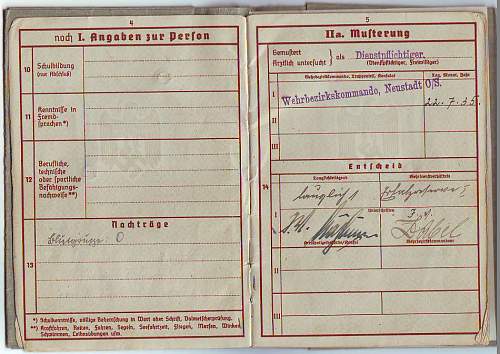 4
noch I. Angaben zur Person
10
Schulbildung
(nur Abschluß)
11
Kenntnisse in
Fremd-
sprachen*)
12
Berufliche,
technische
oder
sportliche
Befähigungs-
nachweise**)
Nachträge
13
Blutgruppe: O
*) Schulkenntnisse, völlige Beherrschung in Wort oder Schrift, Dolmetscherprüfung.
**) Kraftfahren, Reiten, Fahren, Segeln, Seefahrtzeit, Fliegen, Morsen, Winken,
Schwimmen, Leibesübungen usw.
5
IIa. Musterung
Gemustert
Ärztlich untersucht } als Dienstpflichtiger.
(Dienstpflichtiger, Freiwilliger)
Tag, Monat, Jahr
I
Wehrbezirkskommando, Neustadt O/S.
22.7.35.
II
III
Entscheid
14
Tauglichkeitsgrad
Wehrdienstverhältnis
tauglich 1
Ersatzreserve I
I
Unterschriften
II
III